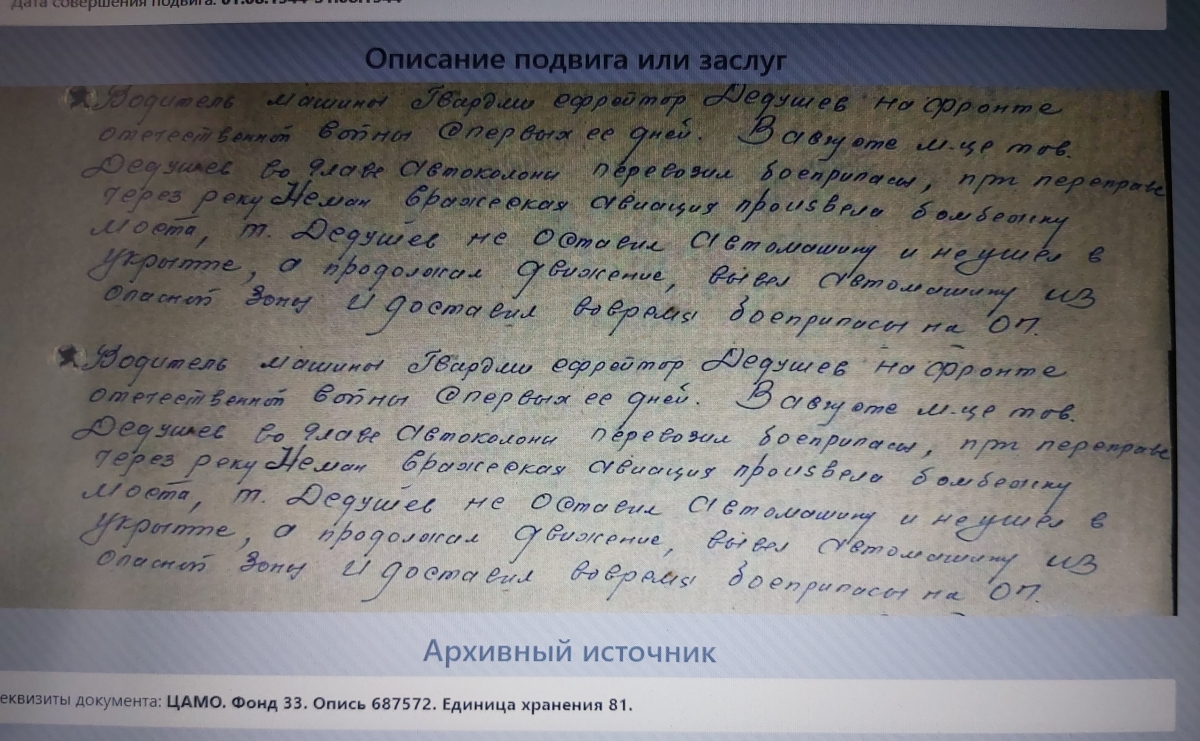 Дата совершения подвига: 01.08.1944-31.08.1944
Описание подвига или заслуг
Водитель машины Гвардии ефрейтор Дедушев на фронте
отечественной войны с первых ее дней. В августе м-це тов.
Дедушев во главе автоколоны перевозил боеприпасы, при переправе
через реку Неман вражеская авиация произвела бомбежку
моста, т. Дедушев не оставил автомашину и не ушел в
укрытие, а продолжал движение, вывел автомашину из
опасной зоны и доставил вовремя боеприпасы на ОП.
Водитель машины Гвардии ефрейтор Дедушев на фронте
отечественной войны с первых ее дней. В августе м-це тов.
Дедушев во главе автоколоны перевозил боеприпасы, при переправе
через реку Неман вражеская авиация произвела бомбежку
моста, т. Дедушев не оставил автомашину и не ушел в
укрытие, а продолжал движение, вывел автомашину из
опасной зоны и доставил вовремя боеприпасы на ОП.
Архивный источник
еквизиты документа: ЦАМО. Фонд 33. Опись 687572. Единица хранения 81.